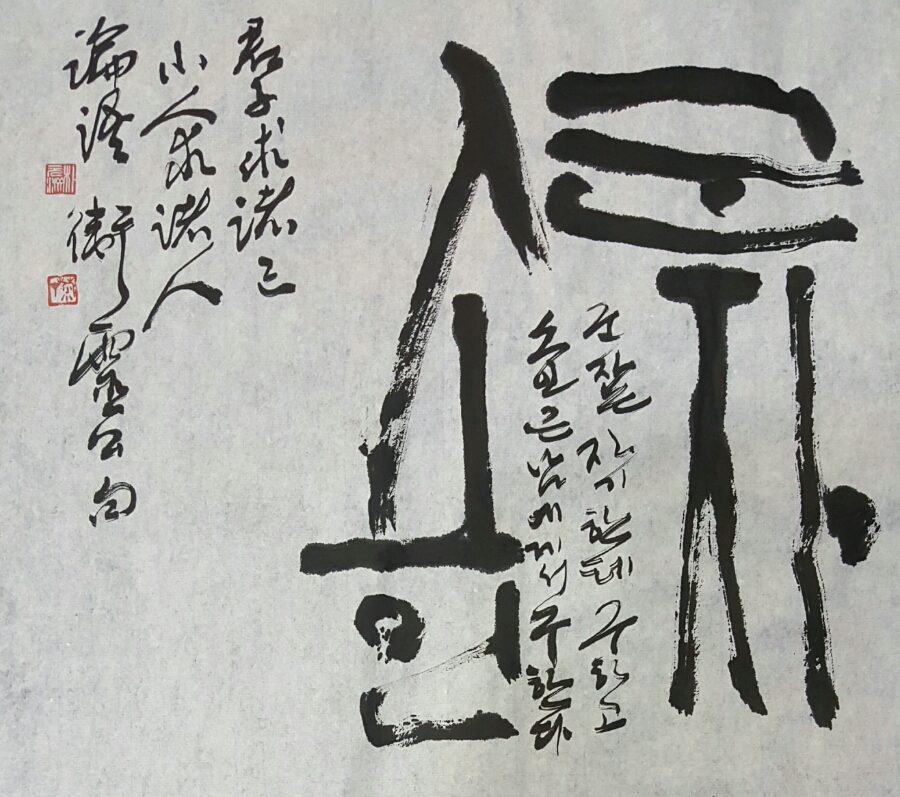 군자
소인
군잔 자기한테 구하고
소인은 남에게서 구한다
君子求諸己
小人求諸人
論語 衛靈公句